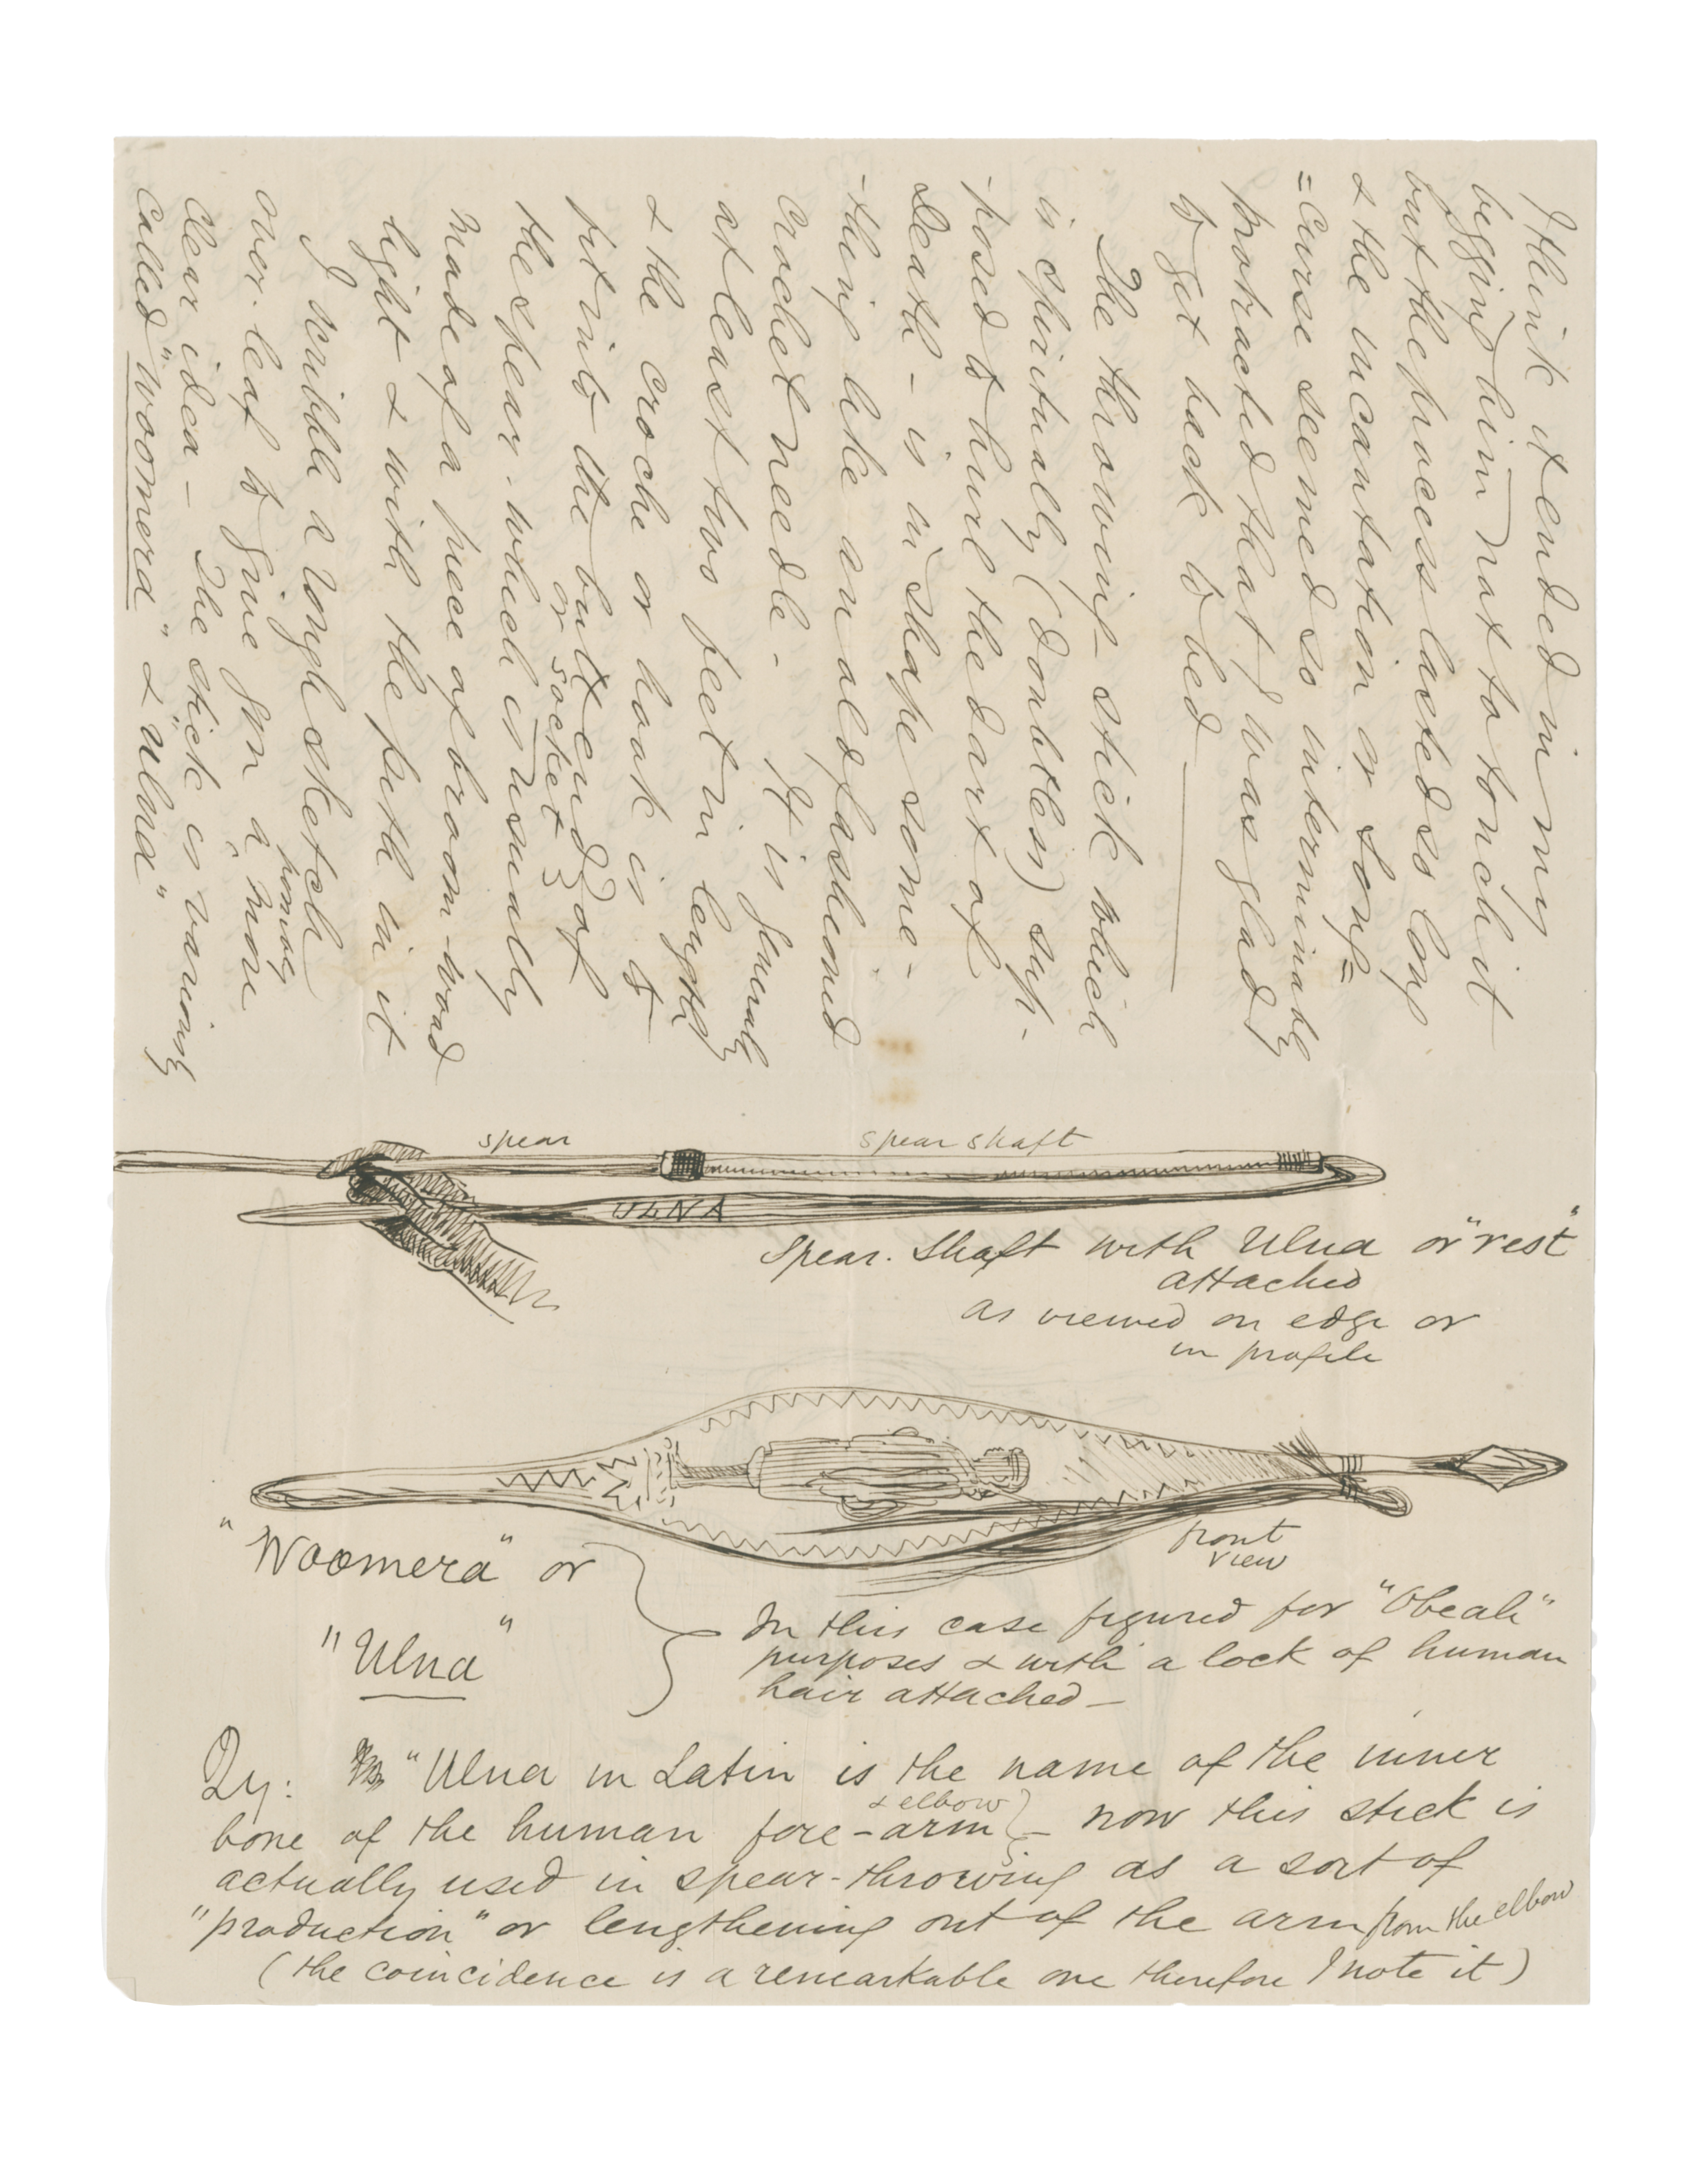 I think it ended in my
begging him not to touch it
but the process lasted so long
& the incantation or song=
=curse seemed so interminably
protracted that I was glad
to get back to bed
The throwing-stick which
is spiritually (doubtless) sup-
-posed to hurl the dart of
Death - is in shape some-
-thing like an old fashioned
crochet needle - It is generally
at least two feet in length
& the croche or hook is to
fit into the butt end of
or socket
the spear - which is usually
made of a piece of broom-wood
light & with the pith in it
I scribble a rough sketch
over-leaf to give you a more
clear idea - The stick is variously
called "woomera" & "Ulna"
spear
spear shaft
ULNA
Spear. Shaft with Ulna or "rest"
attached
as viewed on edge or
in profile
front
view
"Woomera" or
"Ulna"
In this case figured for "Obeah"
purposes & with a lock of human
hair attached -
Qy: "Ulna in Latin is the name of the inner
bone of the human fore-arm & elbow - now this stick is
actually used in spear-throwing as a sort of
"production" or lengthening out of the arm from the elbow
(the coincidence is a remarkable one therefore I note it)